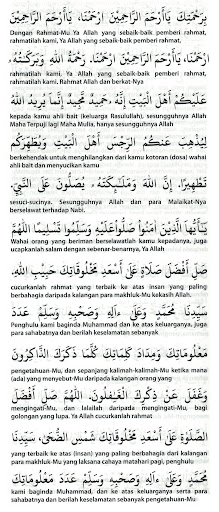 بِرَحْمَتِكَ يَاأَرْحَمَ الرَّاحِمِيْنَ ارْحَمْنَا، يَاأَرْحَمَ الرَّاحِمِيْنَ
Dengan Rahmat-Mu Ya Allah yang sebaik-baik pemberi rahmat,
rahmatilah kami, Ya Allah yang sebaik-baik pemberi rahmat,
ارْحَمْنَا، يَاأَرْحَمَ الرَّاحِمِيْنَ ارْحَمْنَا. رَحْمَةُ اللهِ وَبَرَكَتُهُ
rahmatilah kami, Ya Allah yang sebaik-baik pemberi rahmat,
rahmatilah kami. Rahmat Allah dan berkat-Nya
عَلَيْكُمْ أَهْلَ الْبَيْتِ إِنَّهُ حَمِيْدٌ مَجِيْدٌ إِنَّمَا يُرِيْدُ اللهُ
kepada kamu ahli bait (keluarga Rasulullah), sesungguhnya Allah
Maha Terpuji lagi Maha Mulia, hanya sesungguhnya Allah
لِيُذْهِبَ عَنْكُمُ الرِّجْسَ أَهْلَ الْبَيْتِ وَيُطَهِّرَكُمْ
berkehendak untuk menghilangkan dari kamu kotoran (dosa) wahai
ahli bait dan menyucikan kamu
تَطْهِيْرًا. إِنَّ اللهَ وَمَلَـٰئِكَتَهُ يُصَلُّوْنَ عَلَى النَّبِيِّ.
sesuci-sucinya. Sesungguhnya Allah dan para Malaikat-Nya
berselawat terhadap Nabi.
يَـٰأَيُّهَا الَّذِيْنَ آمَنُوا صَلُّوا عَلَيْهِ وَسَلِّمُوا تَسْلِيْمًا اللَّهُمَّ
Wahai orang yang beriman berselawatlah kamu kepadanya, juga
ucapkanlah salam dengan sebenar-benarnya, Ya Allah
صَلِّ أَفْضَلَ صَلَاةٍ عَلَى أَسْعَدِ مَخْلُوْقَاتِكَ حَبِيْبِ اللهِ.
cucurkanlah rahmat yang terbaik ke atas insan yang paling
berbahagia daripada kalangan para makhluk-Mu kekasih Allah.
سَيِّدِنَا مُحَمَّدٍ وَعَلَىٰ ءَالِهِ وَصَحْبِهِ وَسَلِّمْ عَدَدَ
Penghulu kami baginda Muhammad dan ke atas keluarganya, juga
para sahabatnya dan berilah keselamatan sebanyak
مَعْلُوْمَاتِكَ وَمِدَادَ كَلِمَاتِكَ كُلَّمَا ذَكَرَكَ الذَّاكِرُوْنَ
pengetahuan-Mu, dan sepanjang kalimah-kalimah-Mu ketika mana
(ada) yang menyebut-Mu daripada kalangan orang yang
وَغَفَلَ عَنْ ذِكْرِكَ الْغَافِلُوْنَ. اللَّهُمَّ صَلِّ أَفْضَلَ
mengingati-Mu, dan lalailah daripada mengingati-Mu, bagi
golongan yang lupa. Ya Allah cucurkanlah rahmat
الصَّلَاةِ عَلَىٰ أَسْعَدِ مَخْلُوْقَاتِكَ شَمْسِ الضُّحَىٰ، سَيِّدِنَا
yang terbaik ke atas (insan) yang paling berbahagia dari kalangan
para makhluk-Mu yang laksana cahaya matahari pagi, penghulu
مُحَمَّدٍ وَعَلَىٰ ءَالِهِ وَصَحْبِهِ وَسَلِّمْ عَدَدَ مَعْلُوْمَاتِكَ
kami baginda Muhammad, dan ke atas keluarganya serta para
sahabatnya dan berilah keselamatan sebanyak pengetahuan-Mu